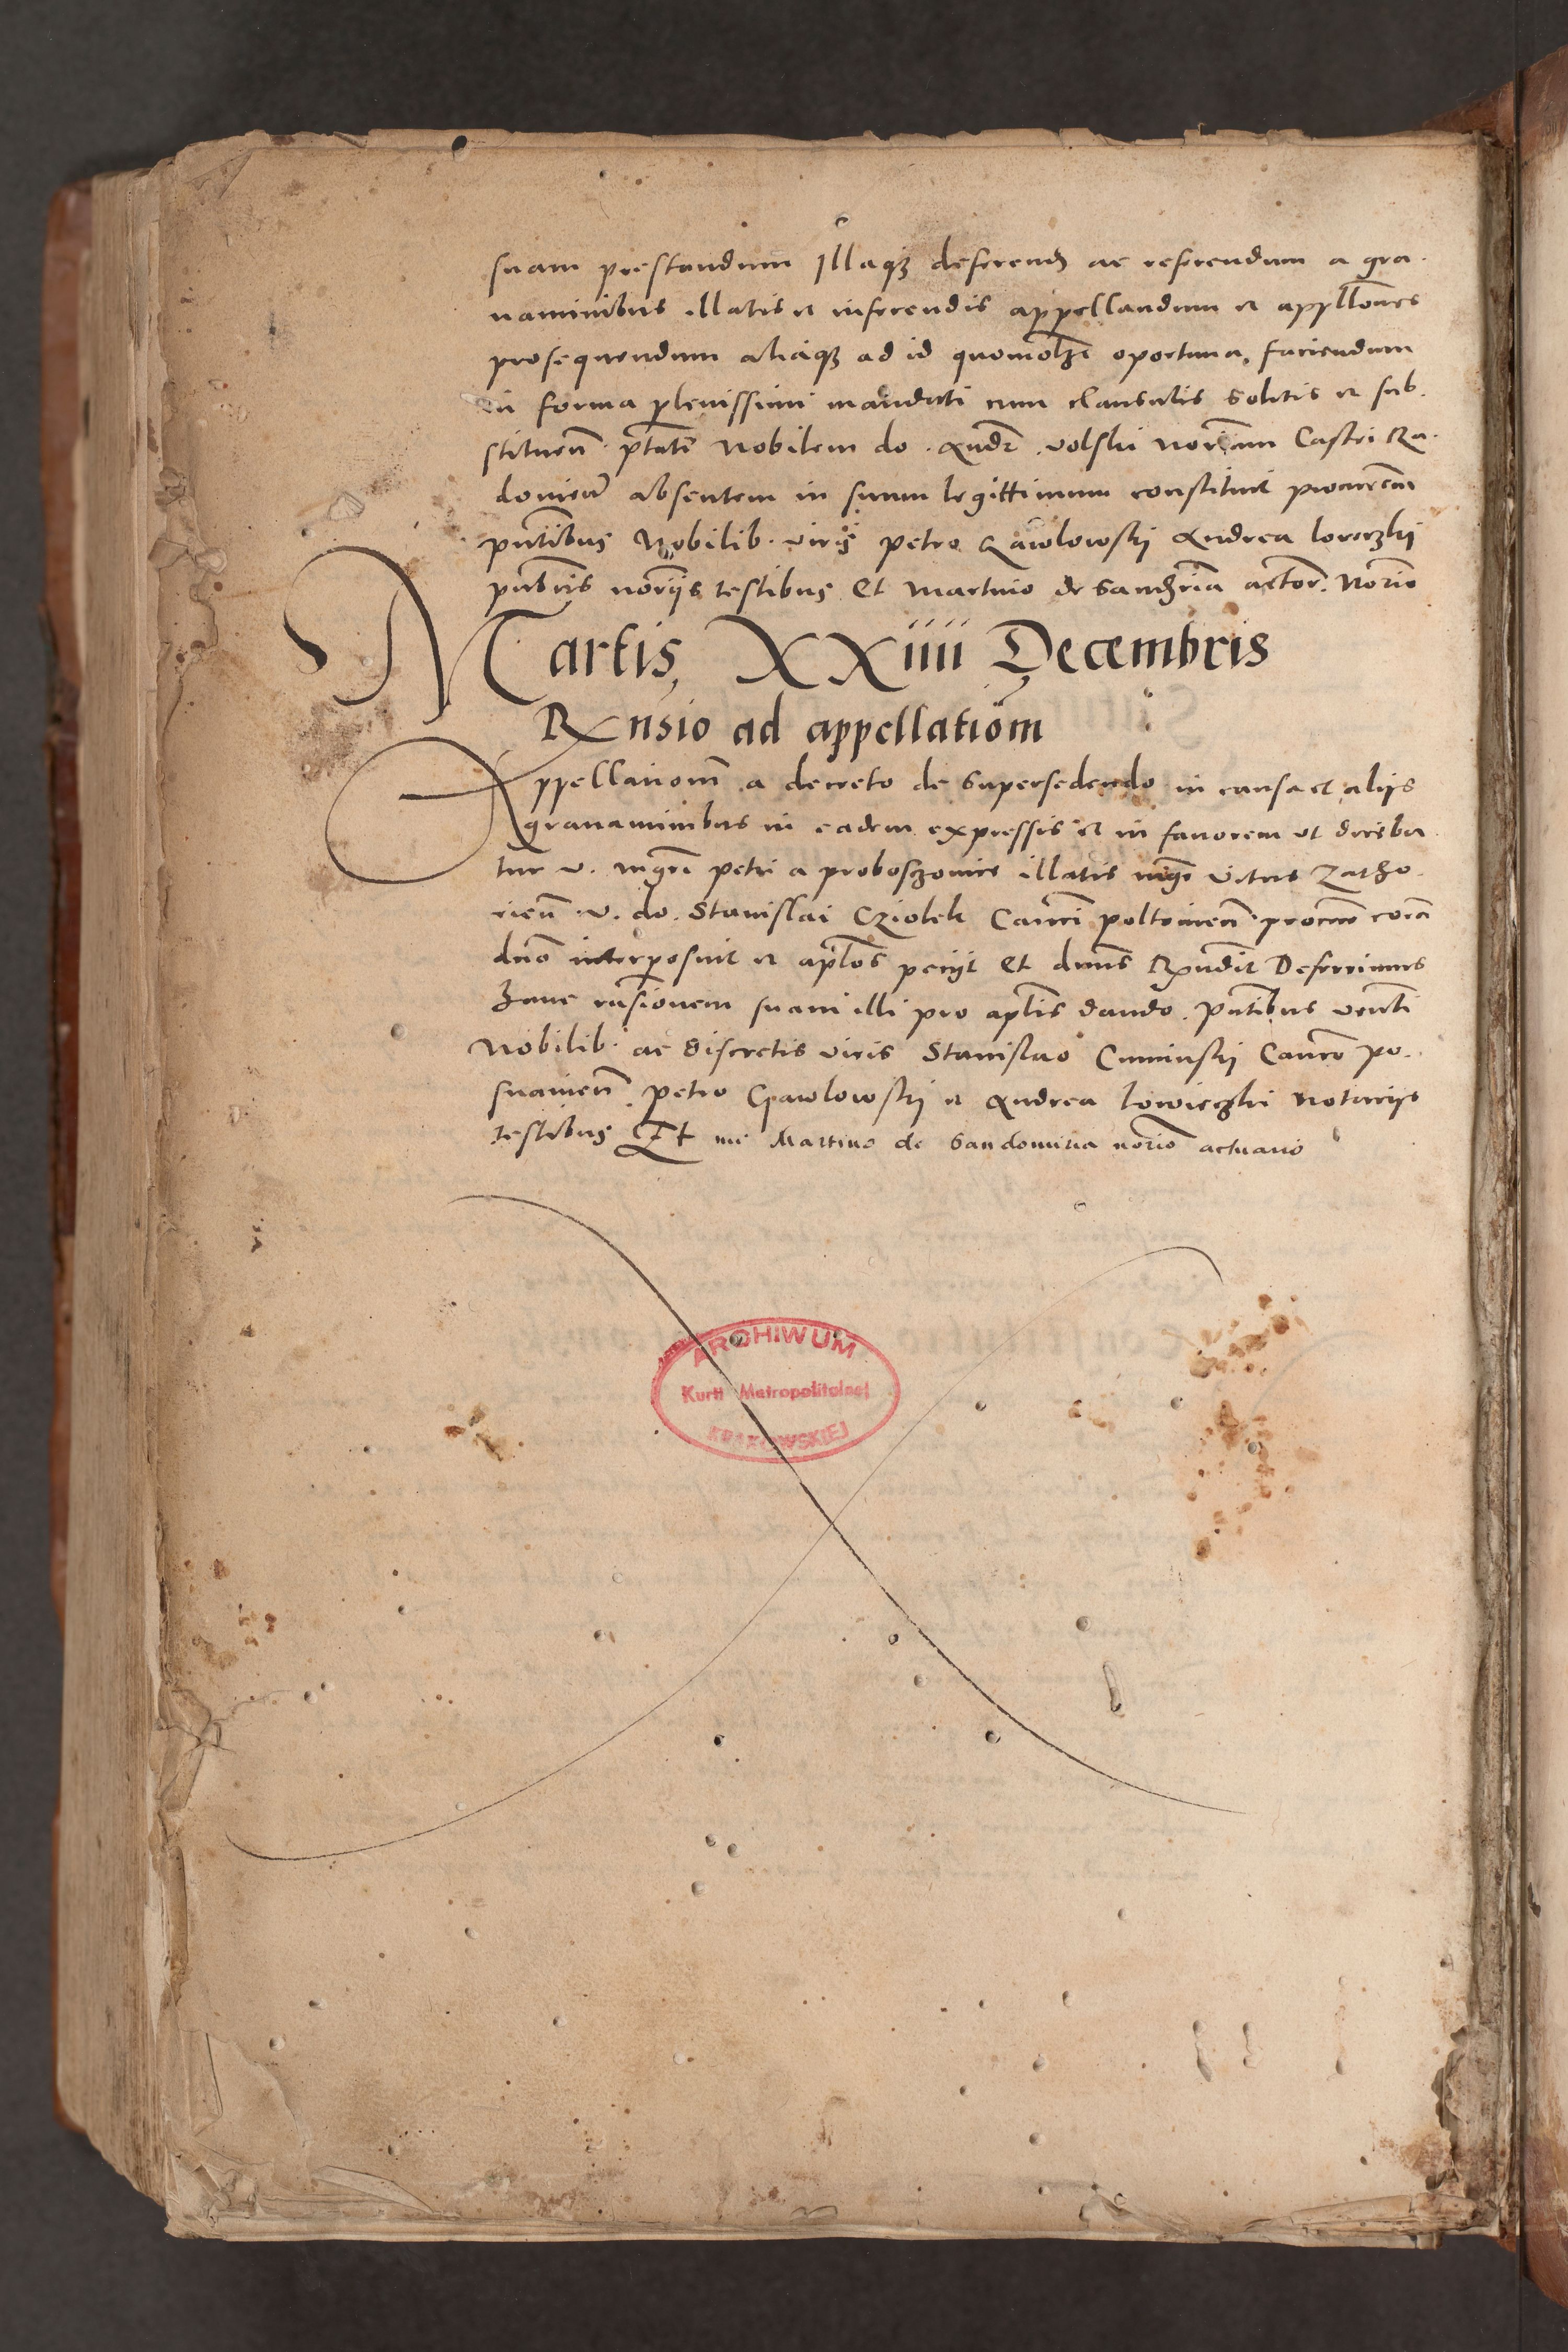 suam prestandum Illaqz deferend ac referendum a gra.
uaminibus illatis et inferendis appellandum et appllones
prosequendum aliaqz ad id quomolzt oportuna. faciendum
in forma plenissimi mandati cum clausulis solitis et sub.
stituen ptatem Nobilem do. Andr. volski notarium Castri Ra.
domien absentem in suum legittimum constituit procurem
pntibus Nobilib. viris petro Gawlowskij Andrea lowiczkij
publicis norijs testibus Et Martino de Sandomiria actor. Norio
Martis XXiiii Decembris
Rnsio ad appellationem
Appellationem a decreto de supersedendo in causa et alijs
grauaminibus in eadem expressis et in fauorem ut diceba
tur v. mgri petri a proboszouice illatis mgr vitus Zatho.
rien v. do. Stanislai Cziolek Canci poltouien procur coram
dno interposuit et aplos petijt Et dnus Rndit Deferimus
hanc rnsionem suam illi pro aplis dando. Pntibus venli
Nobilib. ac discretis viris Stanislao Cuminskij Canco po.
snanien petro Gawlowskij et Andrea lowiczki Notarijs
testibus Et me Martino de Sandomiria norio actuario
ARCHIWUM
Kurii Metropolitalnej
KRAKOWSKIEJ